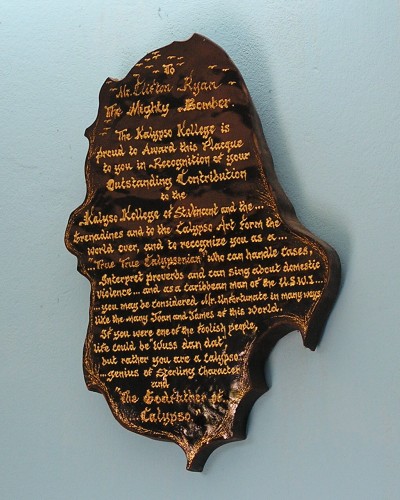 To
Mr. Clifton Ryan
The Mighty Bomber.
The Kalypso Kollege is
proud to Award this Plaque
to you in Recognition of your
Outstanding Contribution
to the
Kalyso Kollege of St. Vincent and the
Grenadines and to the Calypso Art form the
world over, and to recognize you as a...
..."True True Calypsonian" who can handle cases,
Interpret proverbs and can sing about domestic
violence... and as a Caribbean man of the U.S.W.I...
...you may be considered Mr. Unfortunate in many ways
like the many Joan and James of this World.
If you were one of the foolish people,
life could be "Wuss dan dat",
but rather you are a calypso
...genius of Sterling Character
and
"The Godfather of
Calypso."